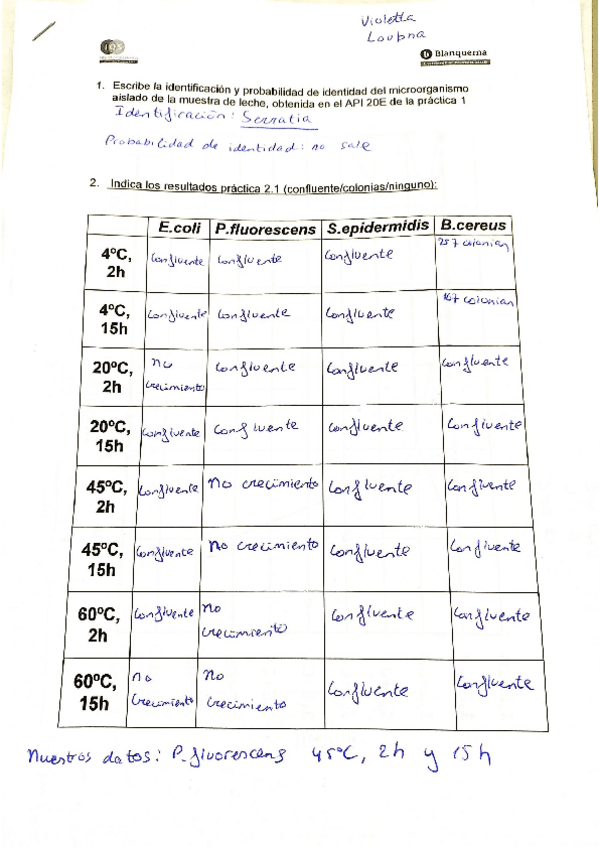 Violetta
Loubna
IQS
Blanquerna
1. Escribe la identificación y probabilidad de identidad del microorganismo
aislado de la muestra de leche, obtenida en el API 20E de la práctica 1
Identificación: Serratia
Probabilidad de identidad: no sale
2. Indica los resultados práctica 2.1 (confluente/colonias/ninguno):
E.coli P.fluorescens S.epidermidis B.cereus
4ºC, 2h confluente confluente confluente 257 colonian
4ºC, 15h confluente confluente confluente 167 colonian
20ºC, 2h no crecimiento confluente confluente confluente
20ºC, 15h confluente confluente confluente confluente
45ºC, 2h confluente no crecimiento confluente confluente
45ºC, 15h confluente no crecimiento confluente confluente
60ºC, 2h confluente no crecimiento confluente confluente
60ºC, 15h no crecimiento no crecimiento confluente confluente
Nuestros datos: P.fluorescens 45ºC, 2h y 15h